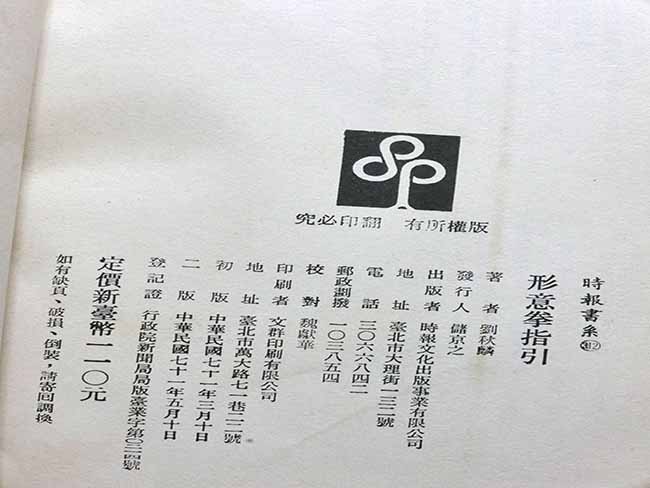 版權所有 翻印必究
時報書系412
形意拳指引
著者 劉秋麟
發行人 儲京之
出版者 時報文化出版事業有限公司
地址 臺北市大理街一三二號
電話 三〇六六八四二
郵政劃撥 一〇三八五四
校對 魏獻華
印刷者 文群印刷有限公司
地址 臺北市萬大路七一巷二二號
初版 中華民國七十一年三月十日
二版 中華民國七十一年五月十日
登記證 行政院新聞局局版臺業字第〇二一四號
定價新臺幣一一〇元
如有缺頁、破損、倒裝,請寄回調換